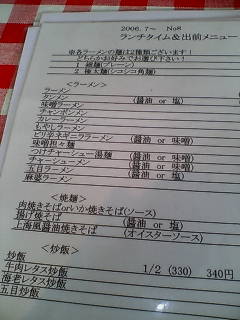 2006.7～ No8
ランチタイム＆出前メニュー
※各ラーメンの麺は2種類ございます!
どちらかお好みでお選び下さい!
1 細麺(プレーン)
2 極太麺(シコシコ角麺)
<ラーメン>
ラーメン
タンメン (醤油 or 塩)
味噌ラーメン
チャンポンメン
カレーラーメン
もやしラーメン
ピリ辛ネギーララーメン (醤油 or 味噌)
味噌担々麺
つけチャーシュー湯麺 (醤油 or 味噌)
チャーシューメン (醤油 or 塩)
五目ラーメン (醤油 or 塩)
麻婆ラーメン
<焼麺>
肉焼きそばorいか焼きそば(ソース)
揚げ焼そば (醤油 or 塩)
上海風醤油焼きそば (オイスターソース)
<炒飯>
炒飯 1/2 (330) 340円
牛肉レタス炒飯
海老レタス炒飯
五目炒飯